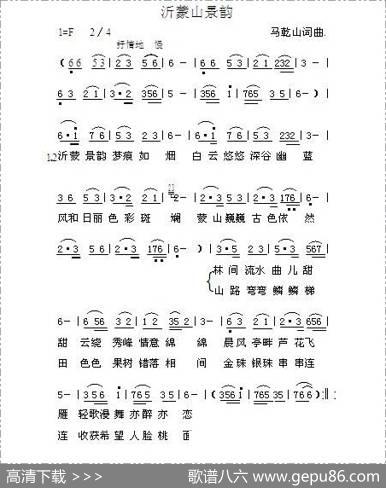 沂蒙山景韵
1=F 2/4 马乾山词曲.
抒情地 慢
( 6 6 5 3 | 2 3 5 6 | 6 - | 6 6 5 3 | 2 1 232 | 3 - |
6 3 2 1 | 3 · 2 356 | 5 6 1 | 356 1 | 765 3 5 | 6 - )
6 · 1 7 6 | 5 3 2 3 | 6 - | 6 · 1 7 6 | 5 3 232 | 3 - |
1.2 沂蒙 景韵 梦痕 如 烟 白 云 悠悠 深谷 幽 蓝
3 6 5 3 | 2 3 1 2 | 2 - | 2 · 3 5 3 | 2 · 3 176 | 6 - |
风和 日丽 色 彩 斑 斓 蒙 山 巍巍 古 色 依 然
2 · 3 | 5 6 1 2 | 2 · 3 176 | 6 - ) | 3 · 5 2 3 | 5 · 3 567 |
林 间 流水 曲 儿 甜
山 路 弯弯 鳞 鳞 梯
6 - | 6 56 3 2 | 1 2 35 2 | 3 - | 6 3 2 1 | 2 · 3 656 |
甜 云绕 秀峰 情意 绵 绵 晨风 亭畔 芦 花飞
田 色色 果树 错落 相 间 金珠 银珠 串 串连
5 - | 3 5 6 1 | 765 3 5 | 6 - | 356 1 | 765 35 | 7 6 6 ) :||
雁 轻歌漫 舞 亦醉 亦 恋
连 收获希 望 人脸 桃
高清下载 >>> 歌谱八六 www.gepu86.com